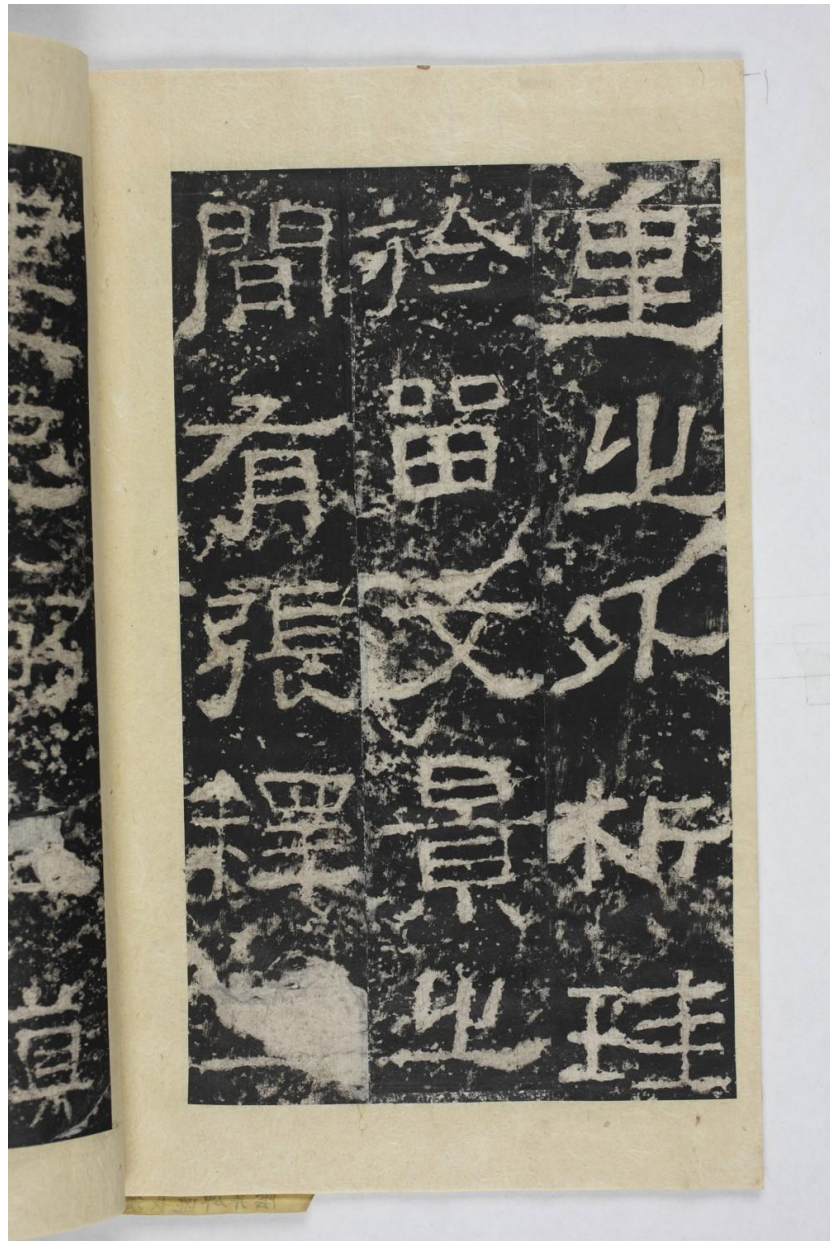 重之外析珪
於留文景之
間有張釋